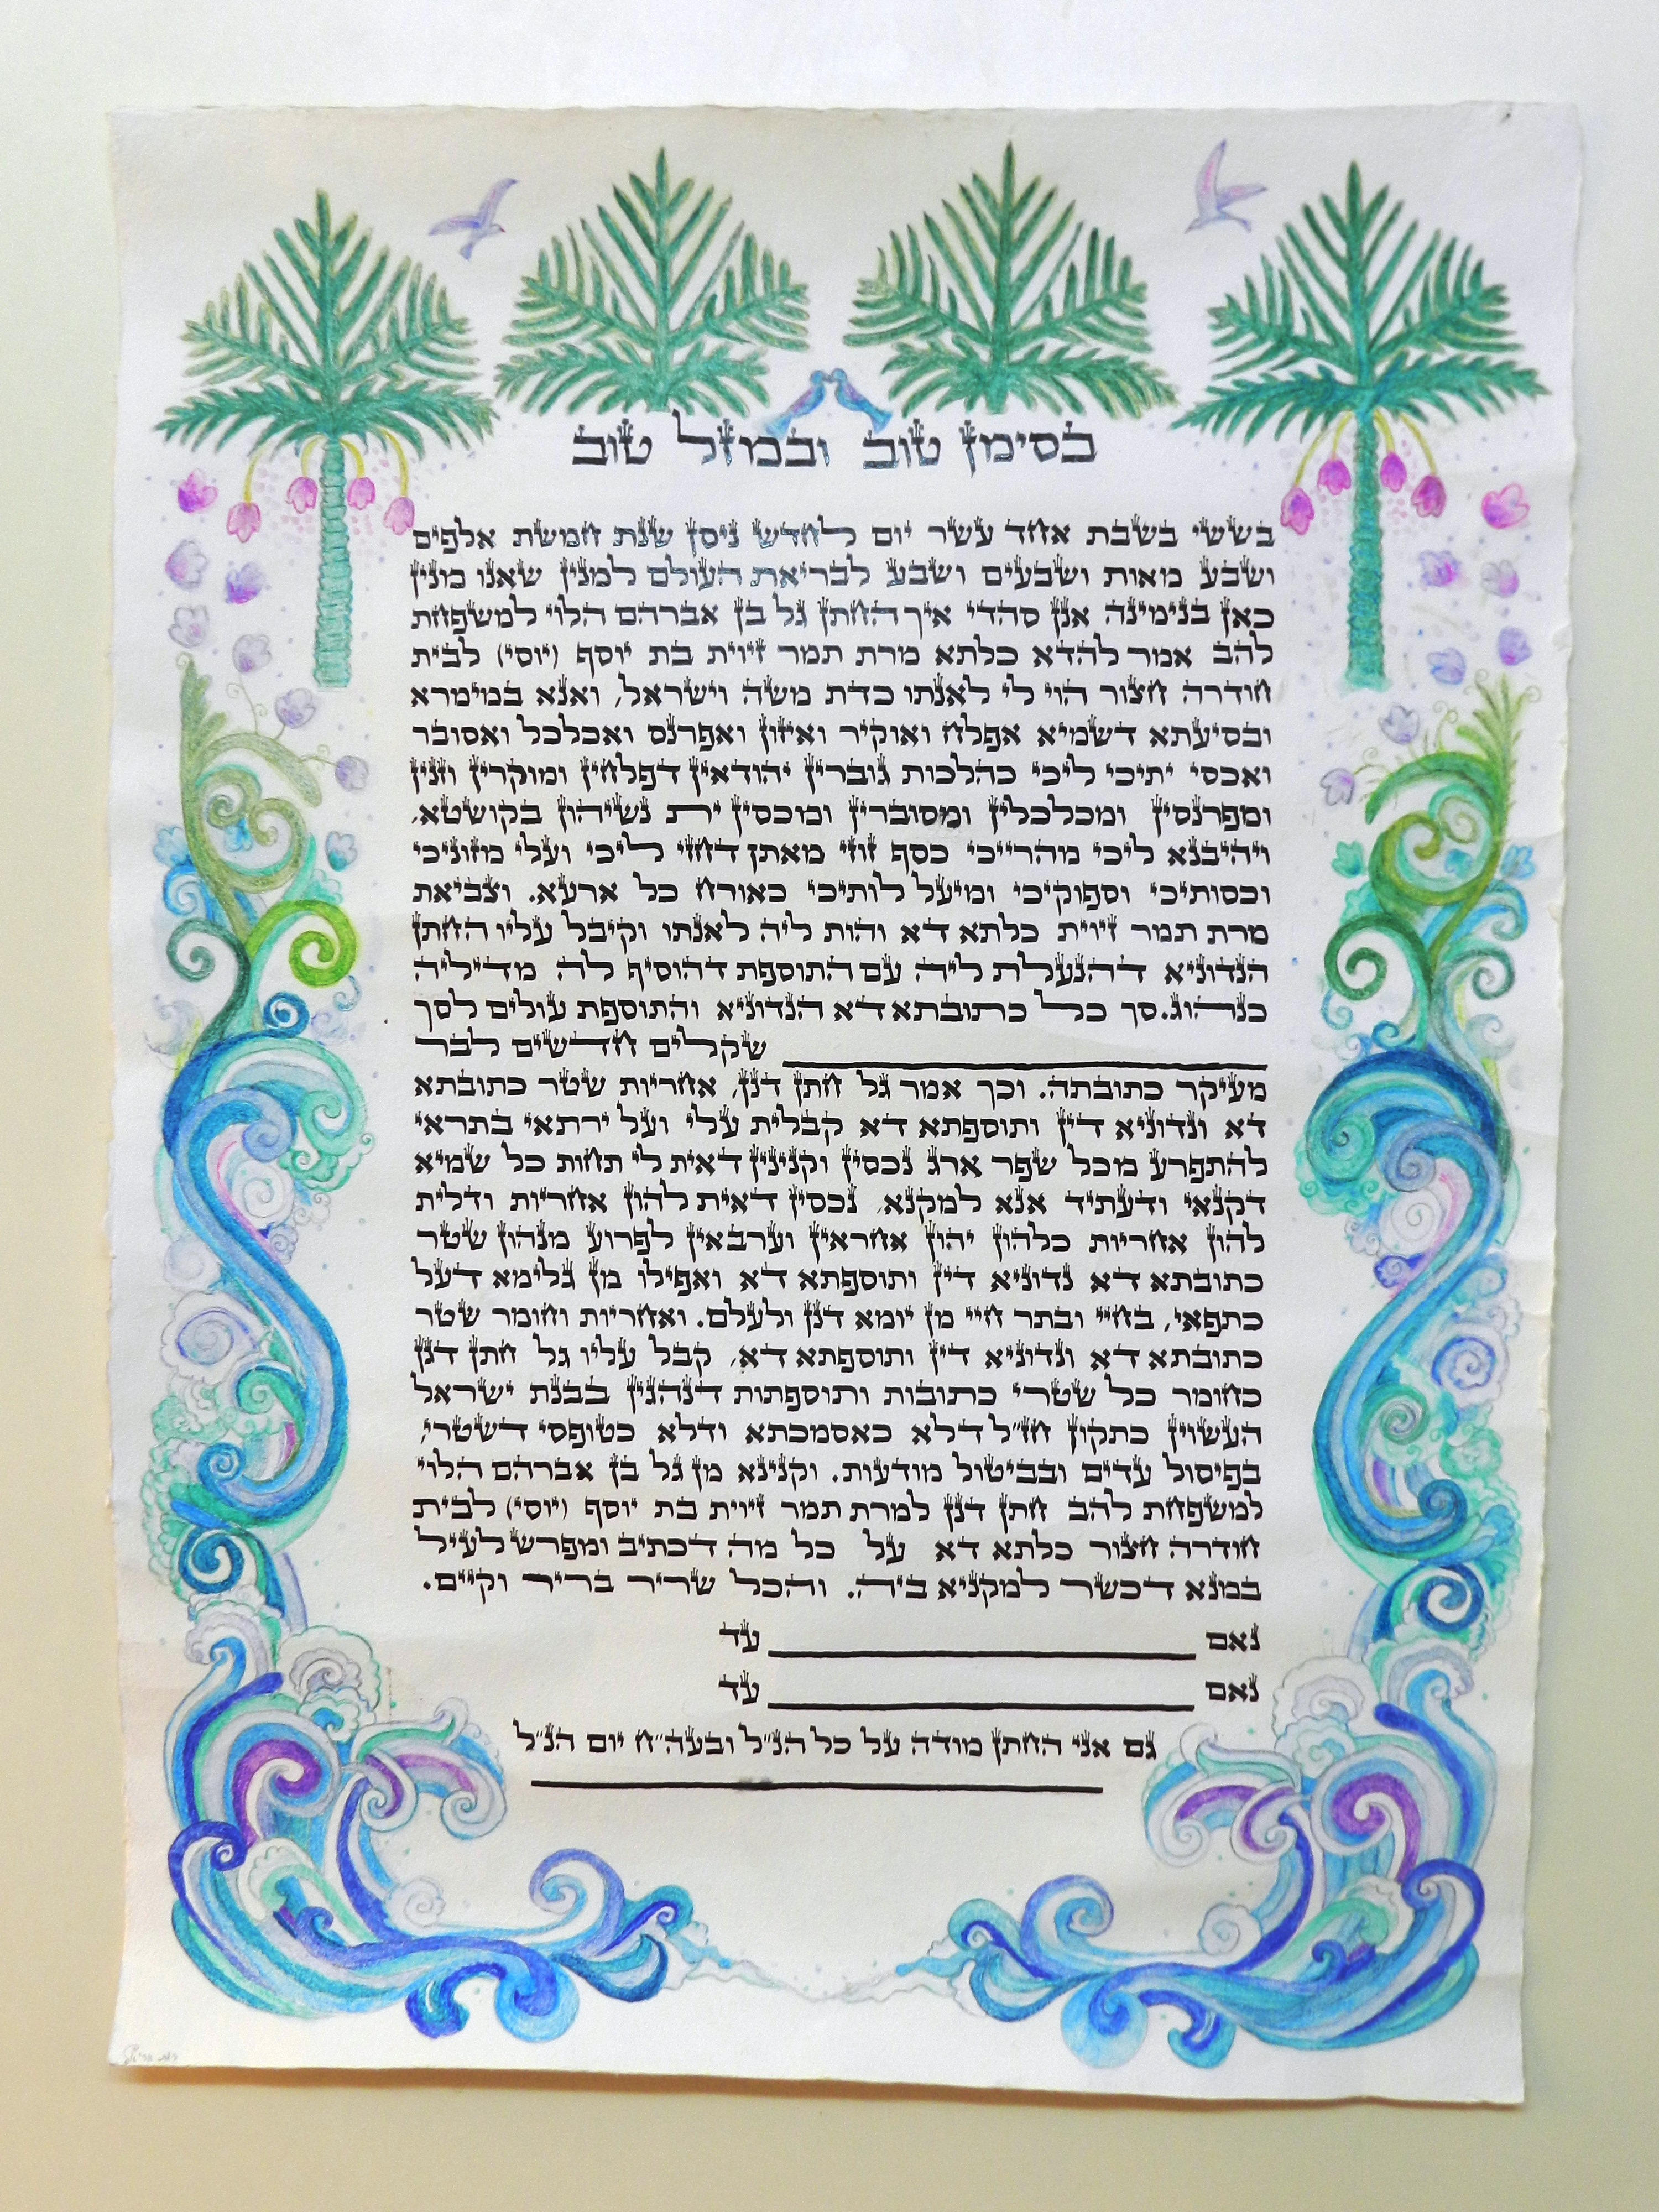 בסימן טוב ובמזל טוב
בששי בשבת אחד עשר יום לחדש ניסן שנת חמשת אלפים
ושבע מאות ושבעים ושבע לבריאת העולם למנין שאנו מונין
כאן בנימינה אנן סהדי איך החתן גל בן אברהם הלוי למשפחת
להב אמר להדא כלתא מרת תמר זיוית בת יוסף (יוסי) לבית
חודרה חצור הוי לי לאנתו כדת משה וישראל, ואנא במימרא
ובסיעתא דשמיא אפלח ואוקיר ואיזון ואפרנס ואכלכל ואסובר
ואכסי יתיכי ליכי כהלכות גוברין יהודאין דפלחין ומוקרין וזנין
ומפרנסין ומכלכלין ומסוברין ומכסין ית נשיהון בקושטא,
ויהיבנא ליכי מהרייכי כסף זוזי מאתן דחזי ליכי ועלי מזוניכי
וכסותיכי וספוקיכי ומיעל לותיכי כאורח כל ארעא. וצביאת
מרת תמר זיוית כלתא דא והות ליה לאנתו וקיבל עליו החתן
הנדוניא דהנעלת ליה עם התוספת דהוסיף לה מדיליה
כנהוג. סך כל כתובתא דא הנדוניא והתוספת עולים לסך
שקלים חדשים לבר
מעיקר כתובתה. וכך אמר גל חתן דנן, אחריות שטר כתובתא
דא ונדוניא דין ותוספתא דא קבלית עלי ועל ירתאי בתראי
להתפרע מכל שפר ארג נכסין וקנינין דאית לי תחות כל שמיא
דקנאי ודעתיד אנא למקנא, נכסין דאית להון אחריות ודלית
להון אחריות כלהון יהון אחראין וערבאין לפרוע מנהון שטר
כתובתא דא נדוניא דין ותוספתא דא ואפילו מן גלימא דעל
כתפאי, בחיי ובתר חיי מן יומא דנן ולעלם. ואחריות וחומר שטר
כתובתא דא ונדוניא דין ותוספתא דא, קבל עליו גל חתן דנן
כחומר כל שטרי כתובות ותוספתות דנהגין בבנת ישראל
העשוין כתקון חז״ל דלא כאסמכתא ודלא כטופסי דשטרי,
בפיסול עדים ובביטול מודעות. וקנינא מן גל בן אברהם הלוי
למשפחת להב חתן דנן למרת תמר זיוית בת יוסף (יוסי) לבית
חודרה חצור כלתא דא על כל מה דכתיב ומפרש לעיל
במנא דכשר למקניא ביה. והכל שריר בריר וקיים.
נאם עד
נאם עד
גם אני החתן מודה על כל הנ״ל ובעה״ח יום הנ״ל